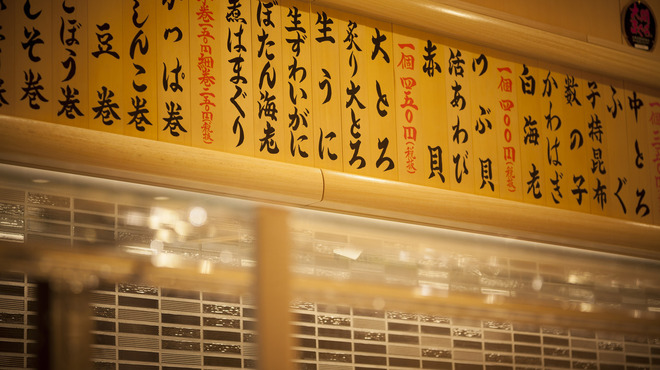 中とろ
ふぐ
子持昆布
数の子
かわはぎ
白海老
一個四〇〇円(税抜)
つぶ貝
活あわび
赤貝
一個四五〇円(税抜)
大とろ
炙り大とろ
生うに
生ずわいがに
ぼたん海老
煮はまぐり
巻一五〇円細巻二五〇円(税抜)
かっぱ巻
しんこ巻
豆巻
ごぼう巻
しそ巻